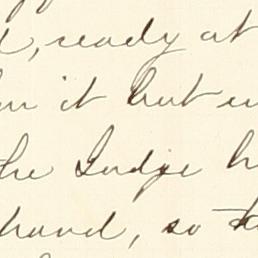 , ready at
it but
the Judge
hand, so